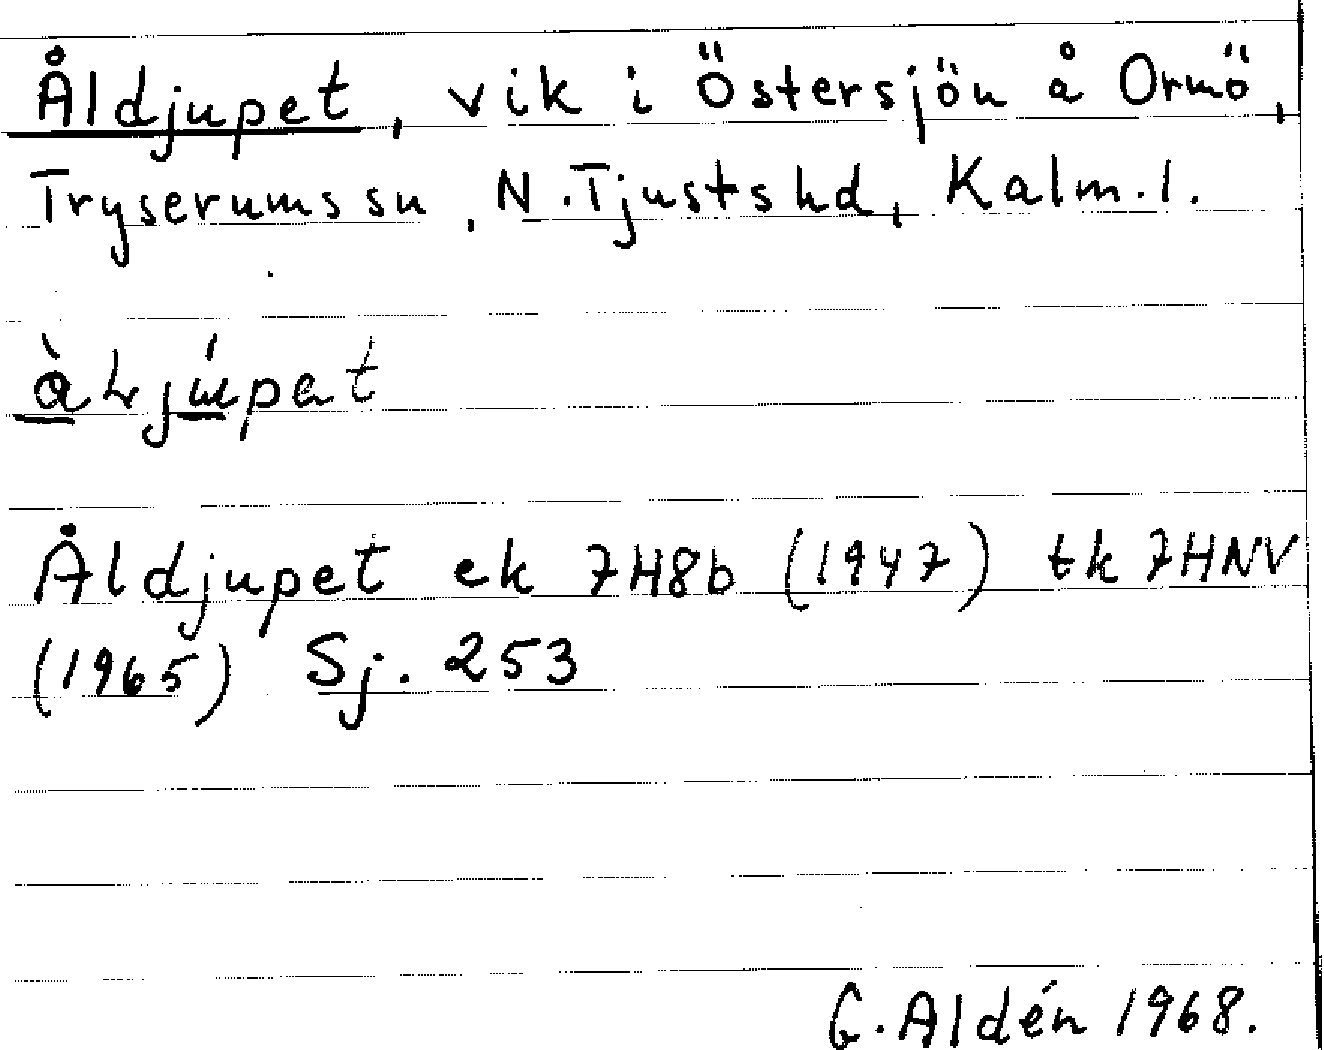 Åldjupet, vik i Östersjön å Ormö,
Tryserums sn, N. Tjusts hd, Kalm. l.
Åldjupet ek 7H8b (1947) tk 7HNV
(1965) Sj. 253
G. Aldén 1968.